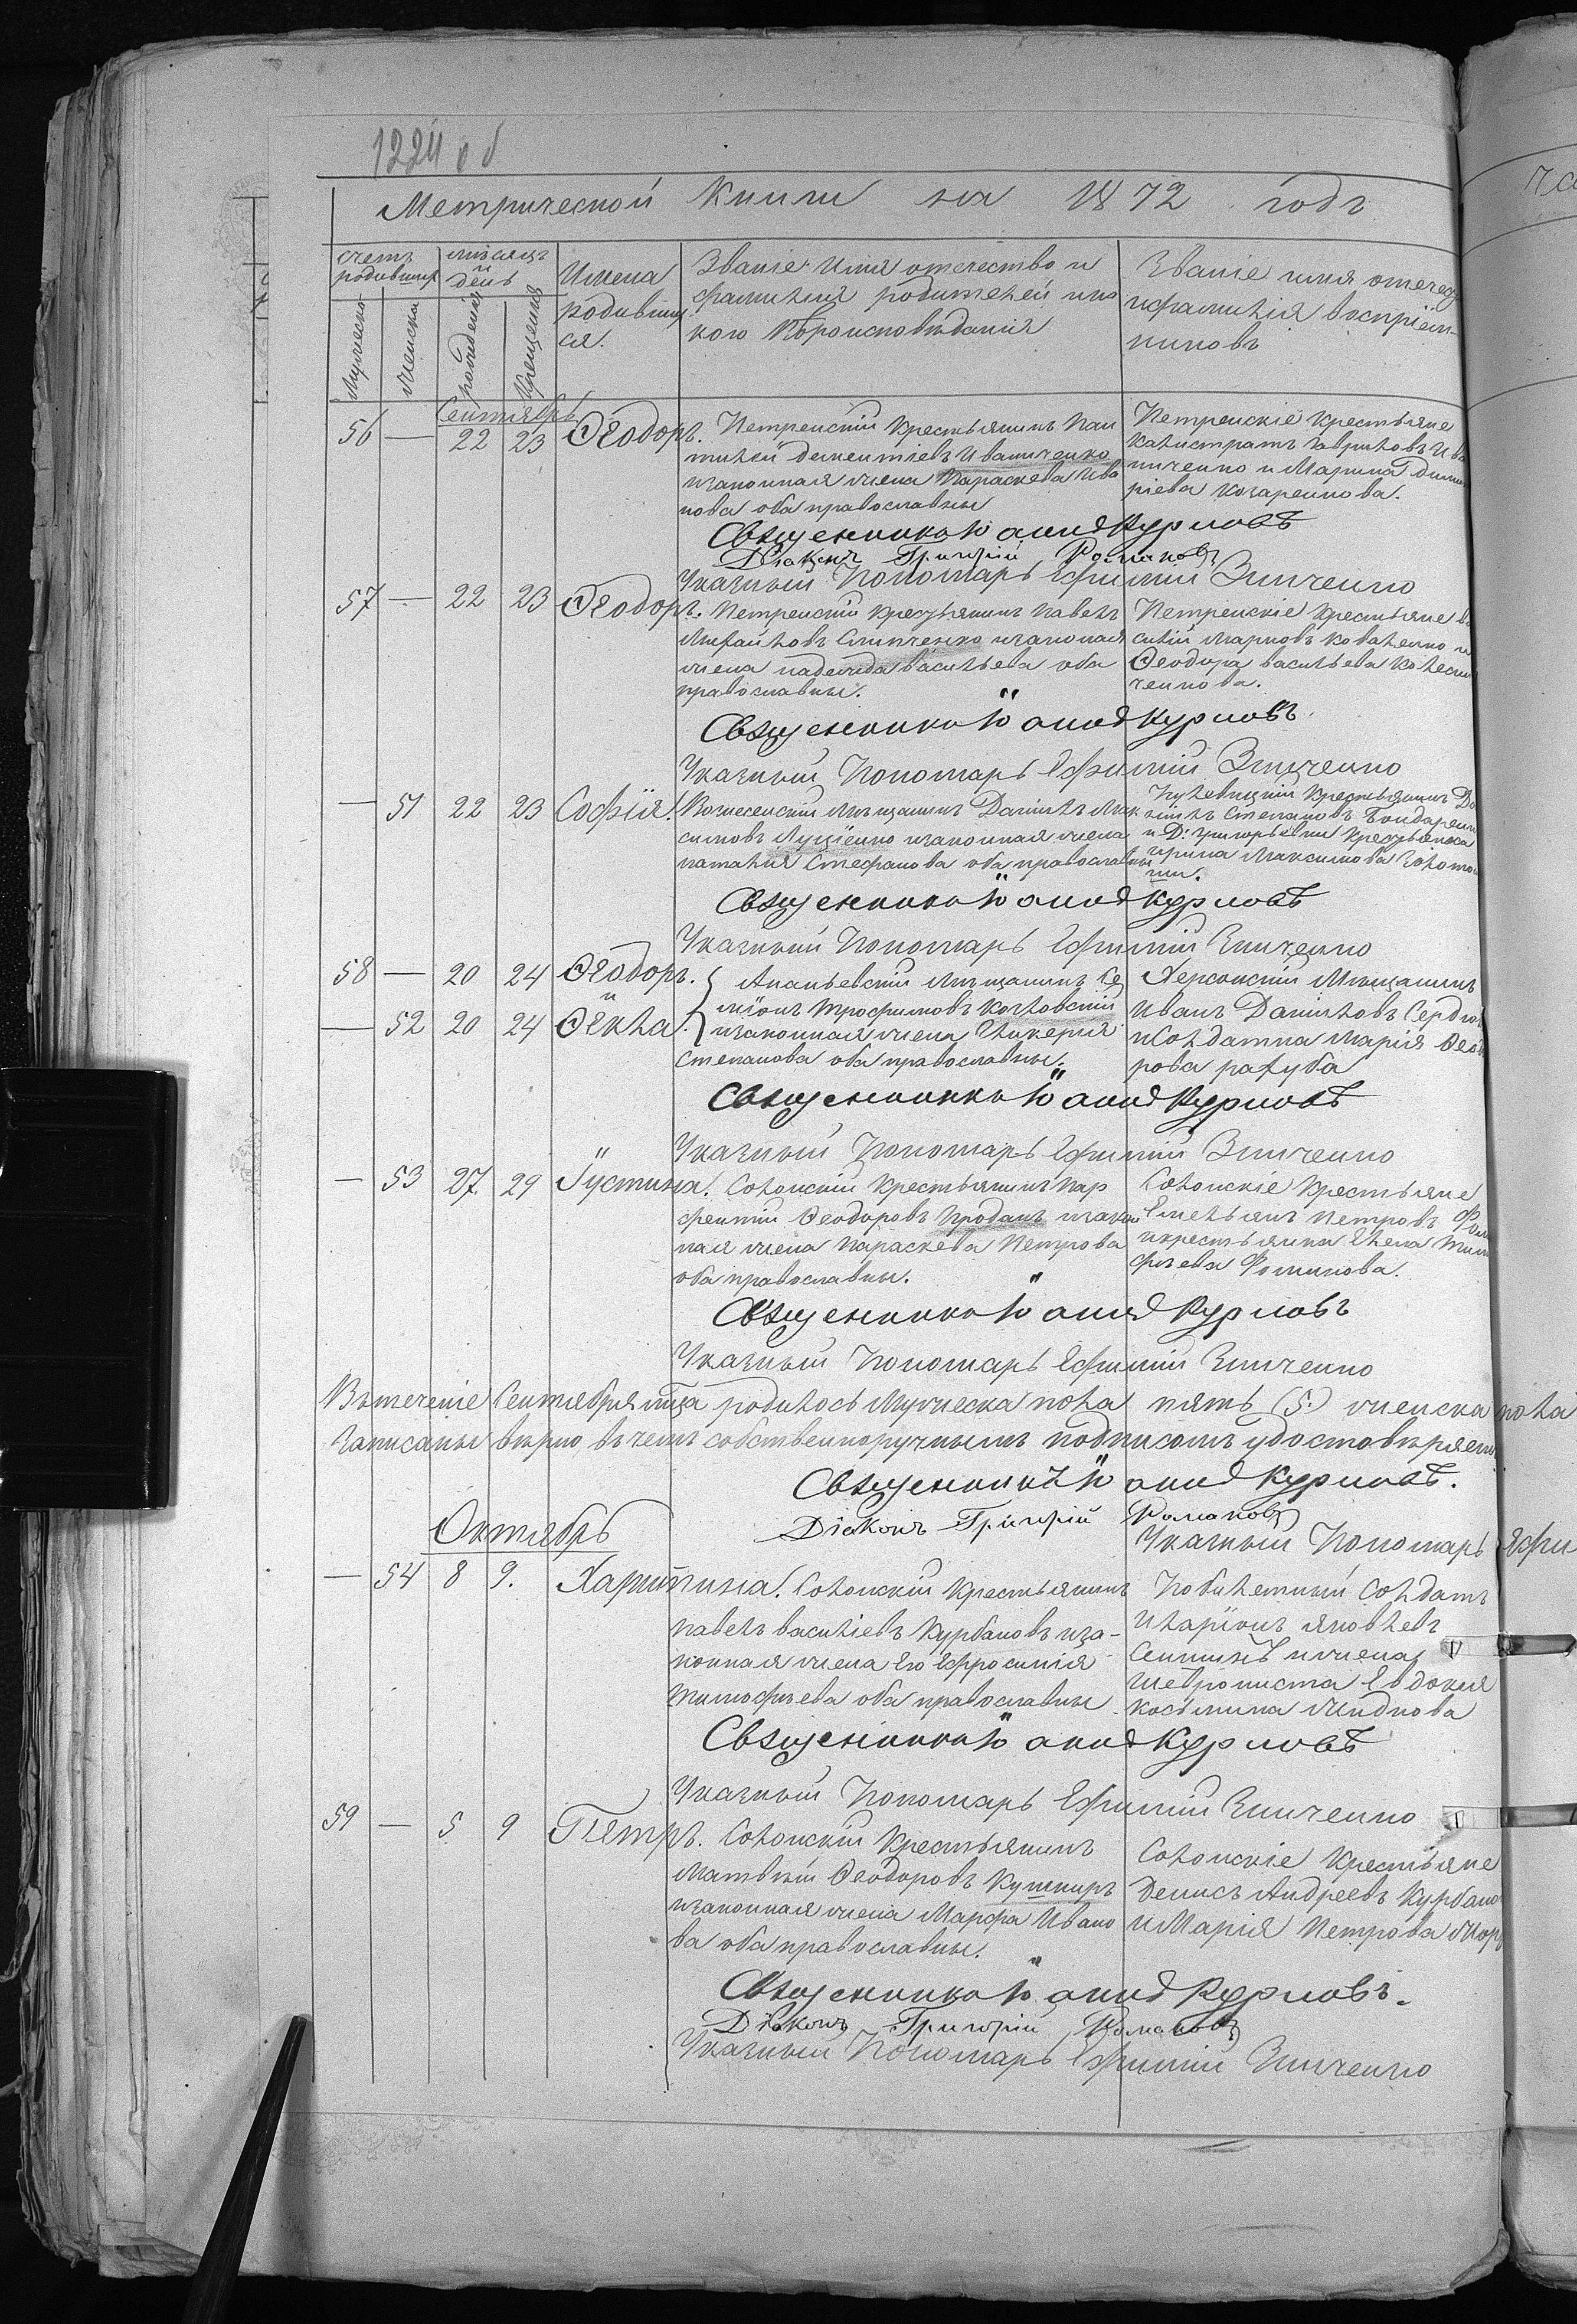 1224 об
Метрической Книги на 1872 годъ
счетъ родившихъ
мѣсяцъ и день
Мужеска
Женска
рожденія
Крещенія
Имена
родивших
ся.
Званіе Имя отечество и
фамилія родителей и ка
кого Вѣроисповѣданія
Званіе имя отечес
и фамилія воспріем-
никовъ
Сентябрь
56 — 22 23 Ѳеодоръ.
Петренскій Крестьянинъ Пан
тилей Дементіевъ Иваниченко
изаконная жена Параскева Ива
нова оба православны
Петренскіе Крестьяне
Калистратъ Гавриловъ Ива
ниченко и Марина Дими
ріева Козаренкова.
Священникъ Іоанъ Курловъ
Діаконъ Григорій Романовъ
Указный Пономарь Ефимій Зинченко
57 — 22 23 Ѳеодоръ.
Петренскій Крестьянинъ Павелъ
Михайловъ Слипченко изаконая
жена надежда васильева оба
православны.
Петренскіе Крестьяне ва
силій Марковъ Коваленко и
Ѳеодора васильева Колесни
ченкова.
Священникъ Іоанъ Курловъ.
Указный Пономарь Ефимій Зинченко
— 51 22 23 Софія.
Вознесенскій Мѣщанинъ Даниилъ Мак
симовъ Луценко изаконная жена
наталія Стефанова оба православны
Крестьянинъ Да
ніилъ Степановъ Бондаренк
и Д: Григорьевки Крестьянка
ирина Максимова
Священникъ Іоанъ Курловъ
Указный Пономарь Ефимій Зинченко
58 — 20 24 Ѳеодоръ.
— 52 20 24 Ѳекла.
Ананьевскій Мѣщанинъ Се
міонъ Трофимовъ Козловскій
изаконная жена Гликерія
Степанова оба православны.
Херсонскій Мѣщанинъ
Иванъ Даниловъ Сердюк
и Солдатка Марія Ѳеодо
рова
Священникъ Іоанъ Курловъ
Указный Пономарь Ефимій Зинченко
— 53 27 29 Іустина.
Солонскій Крестьянинъ Пар
фентій Ѳеодоровъ Проданъ изакон
ная жена Параскева Петрова
оба православны.
Солонскіе Крестьяне
Емельянъ Петровъ Фом
икрестьянка Елена Тимо
фѣева Фоминова.
Священникъ Іоанъ Курловъ
Указный Пономарь Ефимій Зинченко
Втеченіе Сентября мца родилось Мужеска пола пять (5) женска пола
Записаны вѣрно вчемъ собственноручнымъ подписомъ удостовѣряемъ
Священникъ Іоанъ Курловъ.
Діаконъ Григорій Романовъ
Указный Пономарь Ефи
Октябрь
— 54 8 9. Харитина.
Солонскій Крестьянинъ
Павелъ василіевъ Курбановъ иза-
конная жена Его Ефросинія
Тимофѣева оба православны
Побилетный Солдатъ
Иларіонъ яковлевъ
ижена
Евдокия
косьмина
Священникъ Іоанъ Курловъ
Указный Пономарь Ефимій Зинченко
59 — 5 9 Петръ.
Солонскій Крестьянинъ
Матвѣй Ѳеодоровъ Кушниръ
изаконная жена Марфа Ивано
ва оба православны.
Солонскіе Крестьяне
Денисъ Андреевъ Курбано
и Марія Петрова
Священникъ Іоанъ Курловъ.
Діаконъ Григорій Романовъ
Указный Пономарь Ефимій Зинченко